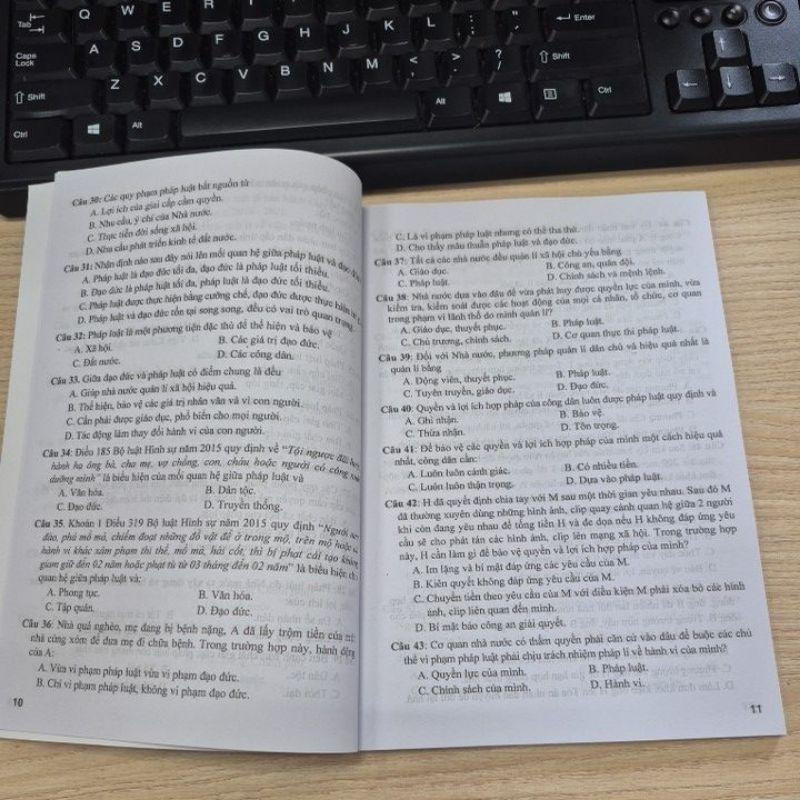 Q W E R F G H J K L
Tab
Enter
Caps Lock
A S D
Shift
Z X C V B N M
Shift
Ctrl
Alt
Alt
Ctrl
Câu 30: Các quy phạm pháp luật bắt nguồn từ
A. Lợi ích của giai cấp cầm quyền.
B. Nhu cầu, ý chí của Nhà nước.
C. Thực tiễn đời sống xã hội.
D. Nhu cầu phát triển kinh tế đất nước.
Câu 31: Nhận định nào sau đây nói lên mối quan hệ giữa pháp luật và đạo
A. Pháp luật là đạo đức tối đa, đạo đức là pháp luật tối thiểu.
B. Đạo đức là pháp luật tối đa, pháp luật là đạo đức tối thiểu.
C. Pháp luật được thực hiện bằng cưỡng chế, đạo đức được thực hiện
D. Pháp luật và đạo đức tồn tại song song, đều có vai trò quan trọng.
Câu 32: Pháp luật là một phương tiện đặc thù để thể hiện và bảo vệ
A. Xã hội. B. Các giá trị đạo đức.
C. Đất nước. D. Các công dân.
Câu 33. Giữa đạo đức và pháp luật có điểm chung là đều
A. Giúp nhà nước quản lí xã hội hiệu quả.
B. Thể hiện, bảo vệ các giá trị nhân văn và vì con người.
C. Cần phải được giáo dục, phổ biến cho mọi người.
D. Tác động làm thay đổi hành vi của con người.
Câu 34: Điều 185 Bộ luật Hình sự năm 2015 quy định về “Tội ngược đãi
hành hạ ông bà, cha mẹ, vợ chồng, con, cháu hoặc người có công
dưỡng mình” là biểu hiện của mối quan hệ giữa pháp luật và
A. Văn hóa. B. Dân tộc.
C. Đạo đức. D. Truyền thống.
Câu 35. Khoản 1 Điều 319 Bộ luật Hình sự năm 2015 quy định “Người
đào, phá mồ mả, chiếm đoạt những đồ vật để ở trong mộ, trên mộ hoặc
hành vi khác xâm phạm thi thể, mồ mả, hài cốt, thì bị phạt cải tạo không
giam giữ đến 02 năm hoặc phạt tù từ 03 tháng đến 02 năm” là biểu hiện
quan hệ giữa pháp luật và:
A. Phong tục. B. Văn hóa.
C. Tập quán. D. Đạo đức.
Câu 36: Nhà quá nghèo, mẹ đang bị bệnh nặng, A đã lấy trộm tiền của
nhà cùng xóm để đưa mẹ đi chữa bệnh. Trong trường hợp này, hành động
của A:
A. Vừa vi phạm pháp luật vừa vi phạm đạo đức.
B. Chỉ vi phạm pháp luật, không vi phạm đạo đức.
10
C. Là vi phạm pháp luật nhưng có thể tha thứ.
D. Cho thấy mâu thuẫn pháp luật và đạo đức.
Câu 37: Tất cả các nhà nước đều quản lí xã hội chủ yếu bằng
A. Giáo dục. B. Công an, quân đội.
C. Pháp luật. D. Chính sách và mệnh lệnh.
Câu 38: Nhà nước dựa vào đâu để vừa phát huy được quyền lực của mình, vừa
kiểm tra, kiểm soát được các hoạt động của mọi cá nhân, tổ chức, cơ quan
trong phạm vi lãnh thổ do mình quản lí?
A. Giáo dục, thuyết phục. B. Pháp luật.
C. Chủ trương, chính sách. D. Cơ quan thực thi pháp luật.
Câu 39: Đối với Nhà nước, phương pháp quản lí dân chủ và hiệu quả nhất là
quản lí bằng
A. Động viên, thuyết phục. B. Pháp luật.
C. Tuyên truyền, giáo dục. D. Đạo đức.
Câu 40: Quyền và lợi ích hợp pháp của công dân luôn được pháp luật quy định và
A. Ghi nhận. B. Bảo vệ.
C. Thừa nhận. D. Tôn trọng.
Câu 41: Để bảo vệ các quyền và lợi ích hợp pháp của mình một cách hiệu quả
nhất, công dân cần:
A. Luôn luôn cảnh giác. B. Có nhiều tiền.
C. Luôn luôn thận trọng. D. Dựa vào pháp luật.
Câu 42: H đã quyết định chia tay với M sau một thời gian yêu nhau. Sau đó M
đã thường xuyên dùng những hình ảnh, clip quay cảnh quan hệ giữa 2 người
khi còn đang yêu nhau để tống tiền H và đe dọa nếu H không đáp ứng yêu
cầu sẽ cho phát tán các hình ảnh, clip lên mạng xã hội. Trong trường hợp
này, H cần làm gì để bảo vệ quyền và lợi ích hợp pháp của mình?
A. Im lặng và bí mật đáp ứng các yêu cầu của M.
B. Kiên quyết không đáp ứng yêu cầu của M.
C. Chuyển tiền theo yêu cầu của M với điều kiện M phải xóa bỏ các hình
ảnh, clip liên quan đến mình.
D. Bí mật báo công an giải quyết.
Câu 43: Cơ quan nhà nước có thẩm quyền phải căn cứ vào đâu để buộc các chủ
thể vi phạm pháp luật phải chịu trách nhiệm pháp lí về hành vi của mình?
A. Quyền lực của mình. B. Pháp luật.
C. Chính sách của mình. D. Hành vi.
11